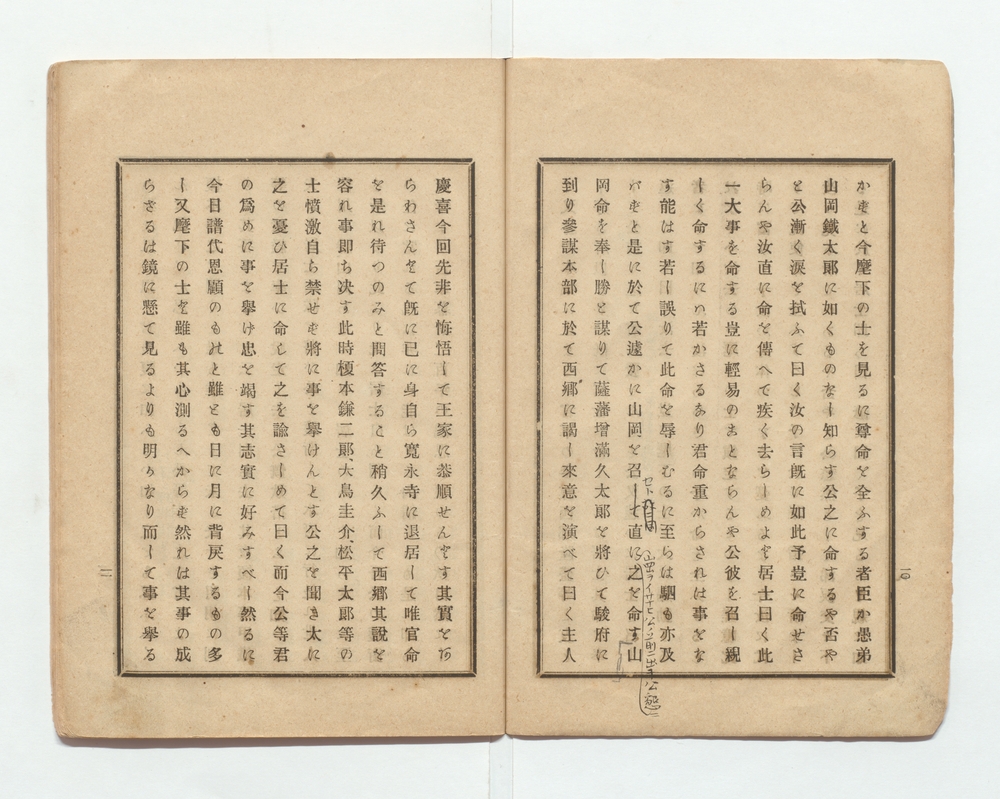 かずと今麾下の士を見るに尊命を全ふする者臣か愚弟
山岡鐵太郎に如くものなし知らす公之に命するや否や
と公漸く涙を拭ふて曰く汝の言旣に如此予豈に命せさ
らんや汝直に命を傳へて疾く去らしめよと居士曰く此
一大事を命する豈に輕易のことならんや公彼を召し親
しく命するにハ若かさるあり君命重からされは事をな
す能はす若し誤りて此命を辱しむるに至らは駟も亦及
ハずと是に於て公遽かに山岡を召して直に之を命す山
岡命を奉し勝と謀りて薩藩增滿久太郎を將ひて駿府に
到り參謀本部に於て西郷に謁し來意を演べて曰く主人
慶喜今回先非を悔悟して王家に恭順せんとす其實をあ
らわさんとて旣に已に身自ら寬永寺に退居して唯官命
を是れ待つのみと問答すること稍久ふして西郷其說を
容れ事卽ち決す此時榎本鎌二郎、大鳥圭介、松平太郎等の
士憤激自ら禁せず將に事を擧けんとす公之を聞き太に
之を憂ひ居士に命して之を諭さしめて曰く而今公等君
の爲めに事を擧け忠を竭す其志實に好みすべし然るに
今日譜代恩顧のものと雖とも日に月に背戾するもの多
し又麾下の士と雖も其心測るへからず然れは其事の成
らざるは鏡に懸て見るよりも明かなり而して事を擧る